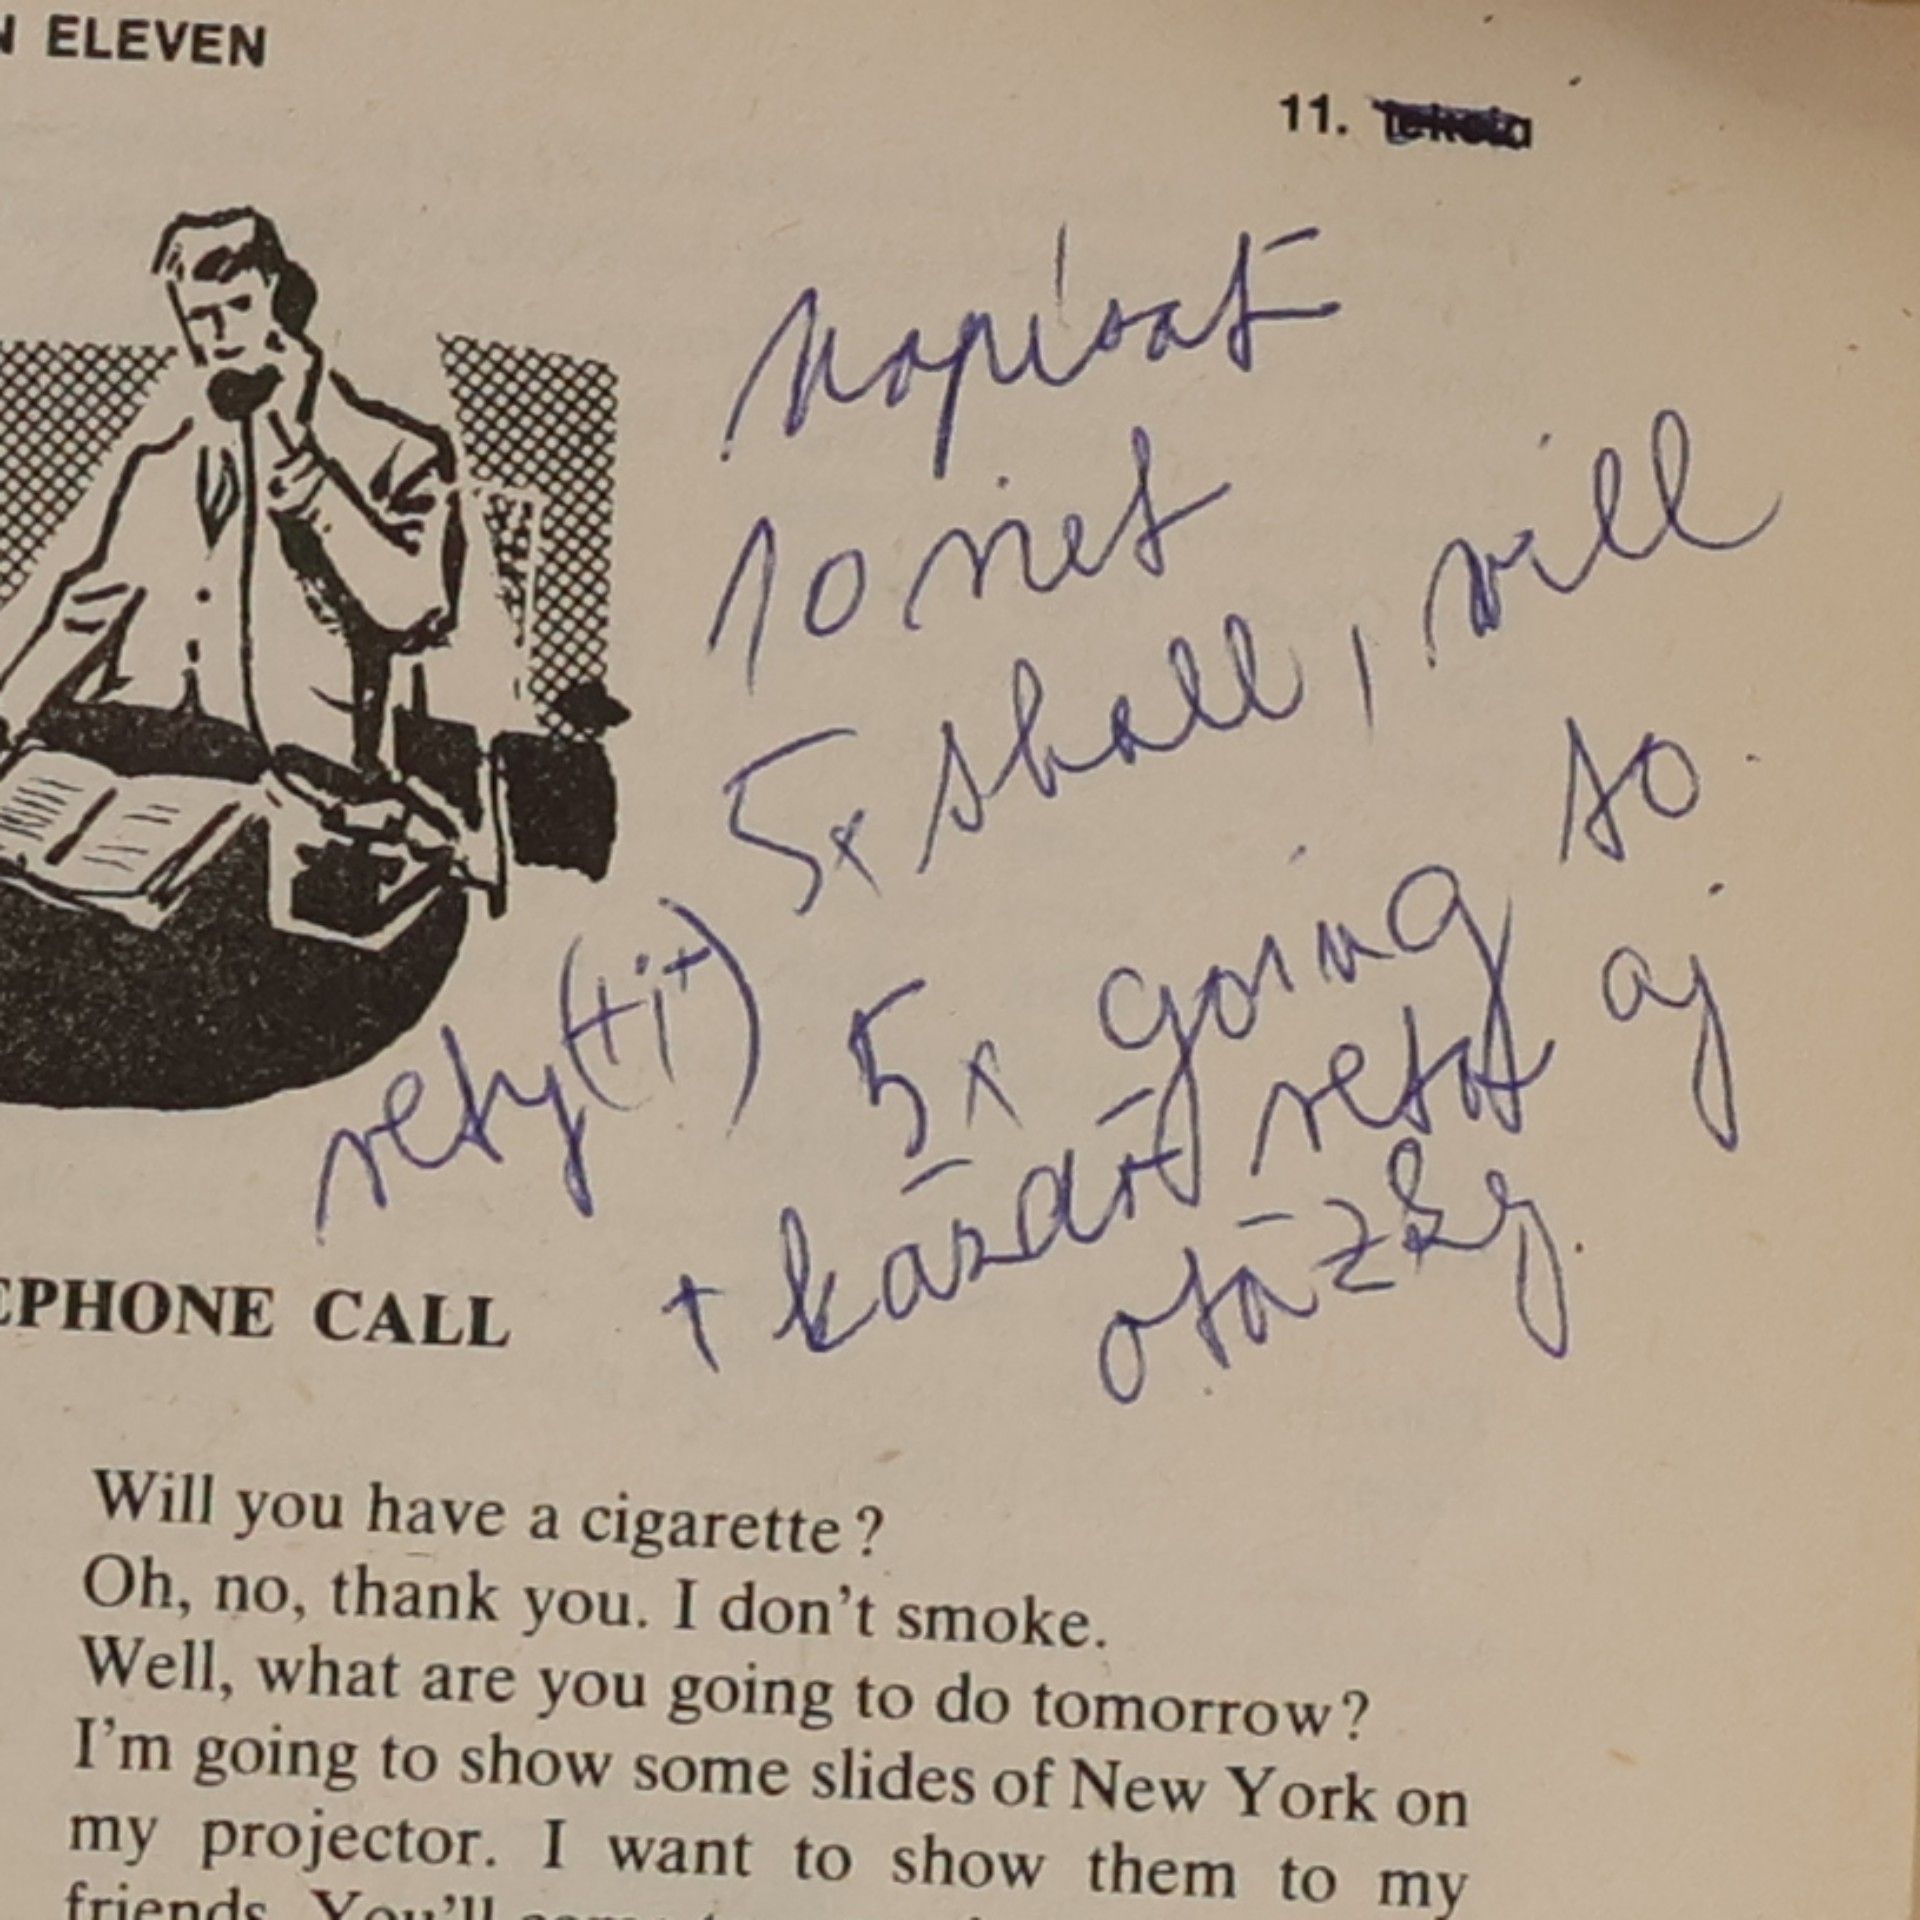 N ELEVEN
11. lekcia
napísať
10 viet
5x shall, will
5x going to
vety (+i+)
+ každú vetu aj
otázky.
EPHONE CALL
Will you have a cigarette?
Oh, no, thank you. I don't smoke.
Well, what are you going to do tomorrow?
I'm going to show some slides of New York on
my projector. I want to show them to my
friends. You'll